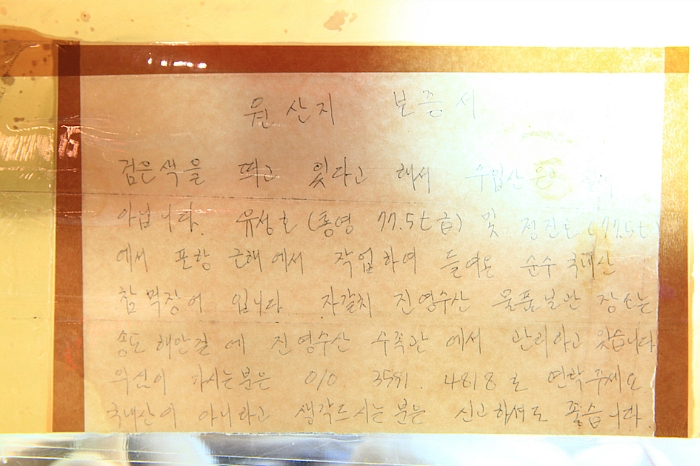 원산지 보증서
검은색을 띄고 있다고 해서 수입산은
아닙니다. 유성호(통영 77.5t급) 및 정진호(77.5t
에서 포항 근해에서 작업하여 들여온 순수 국내산
참먹장어 입니다 자갈치 진영수산 물품보관 장소는
송도 해안길에 진영수산 수족관에서 관리하고 있습니다
의심이 가시는분은 010. 3591. 4818로 연락주세요
국내산이 아니라고 생각드시는분은 신고하셔도 좋습니다.